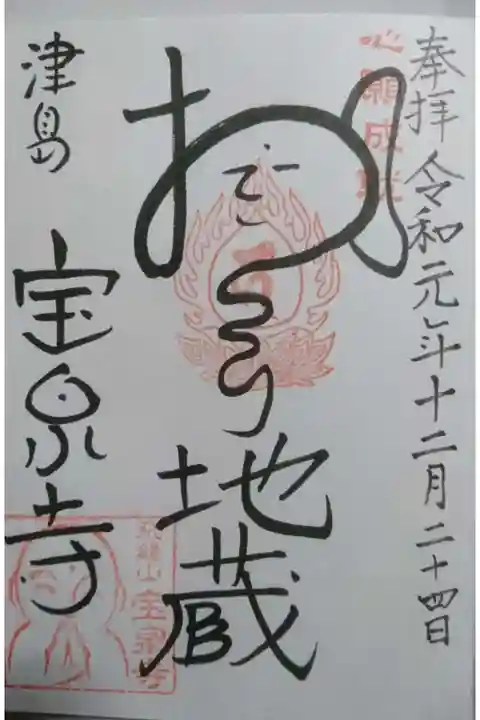 奉拝 令和元年十二月二十四日
心願成就
地蔵
津島 宝泉寺
龍山 宝泉寺